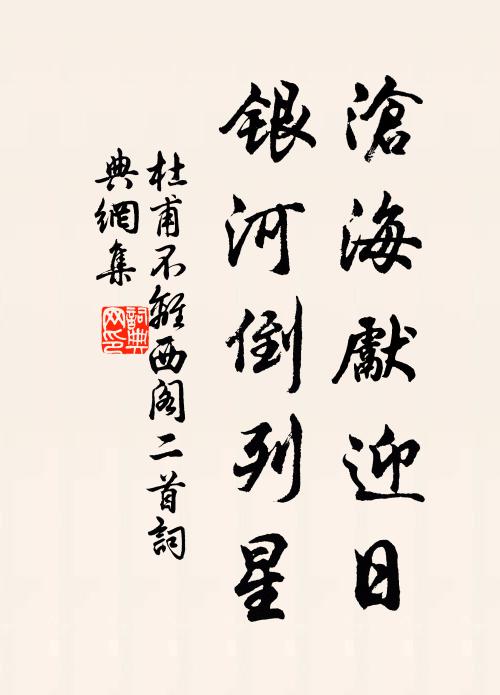 滄海獻迎日
銀河倒列星
杜甫不離西閣二首詞
典網集
詞典
网印